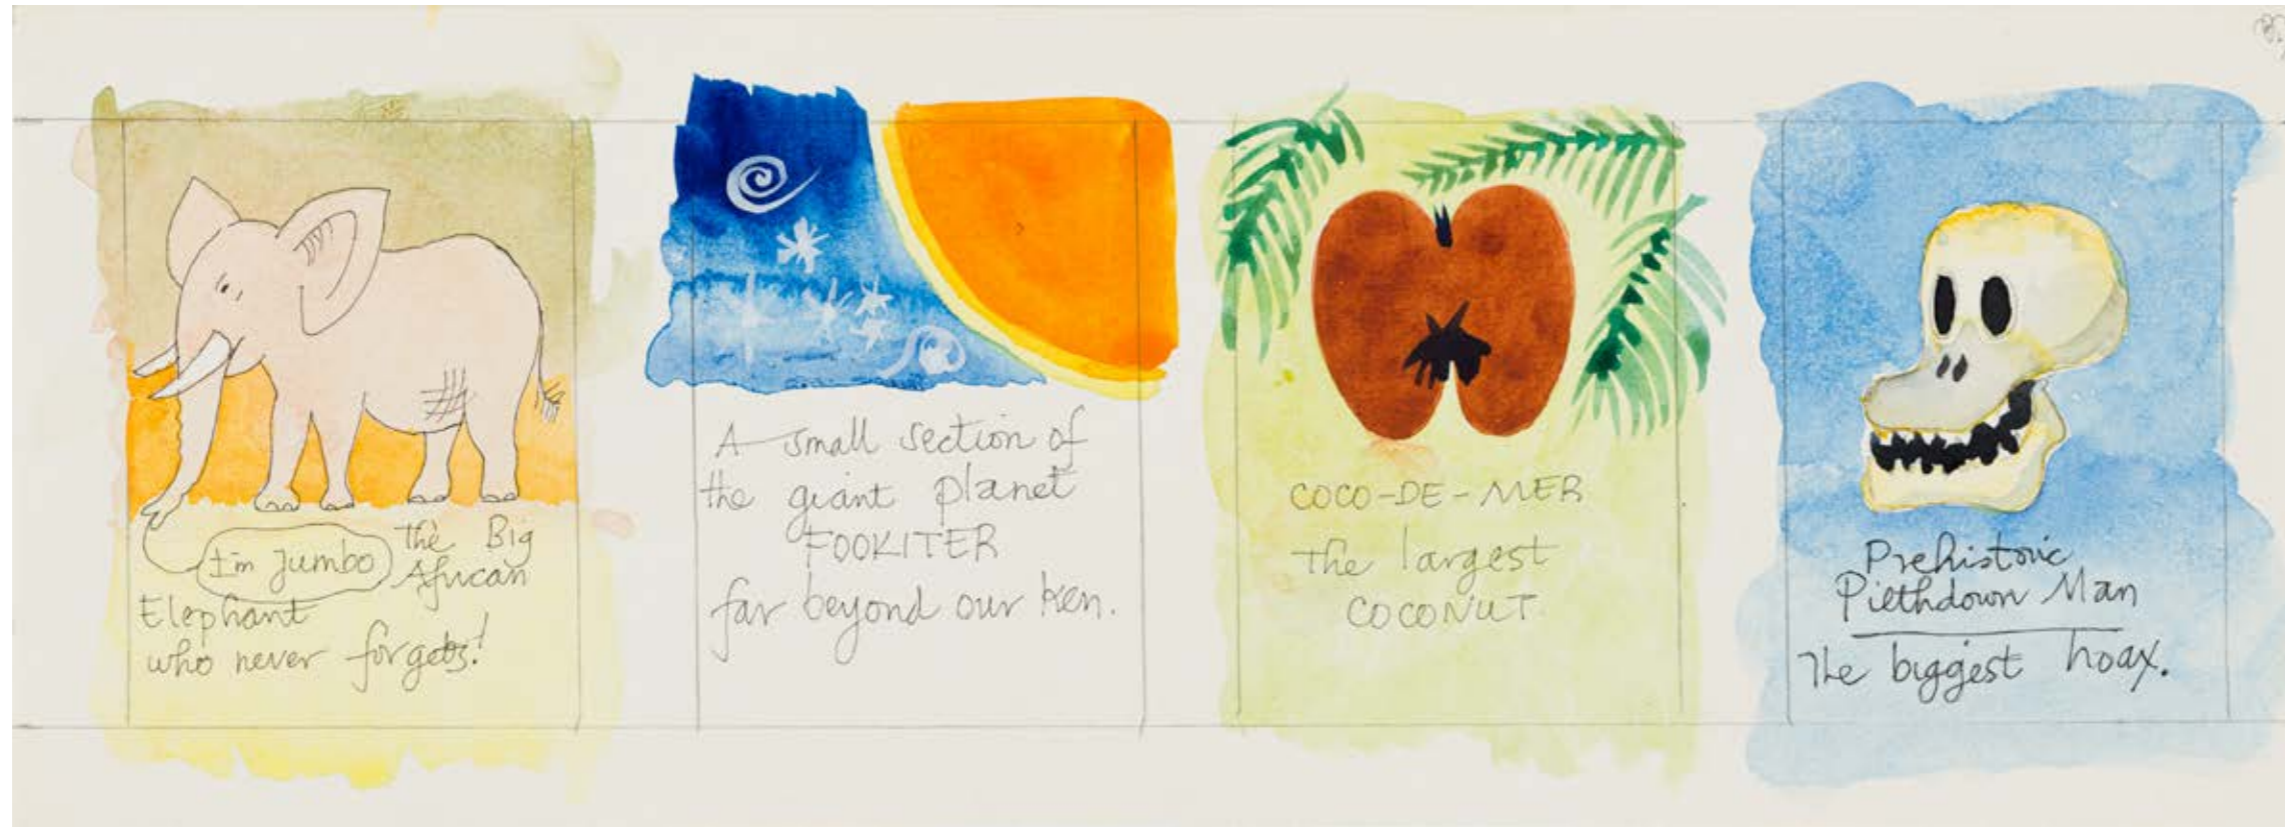 I'm Jumbo
The Big
African
Elephant
who never forgets!
A small section of
the giant planet
FOOKITER
far beyond our ken.
COCO-DE-MER
The largest
COCONUT
Prehistoric
Pielthdown Man
The biggest hoax.